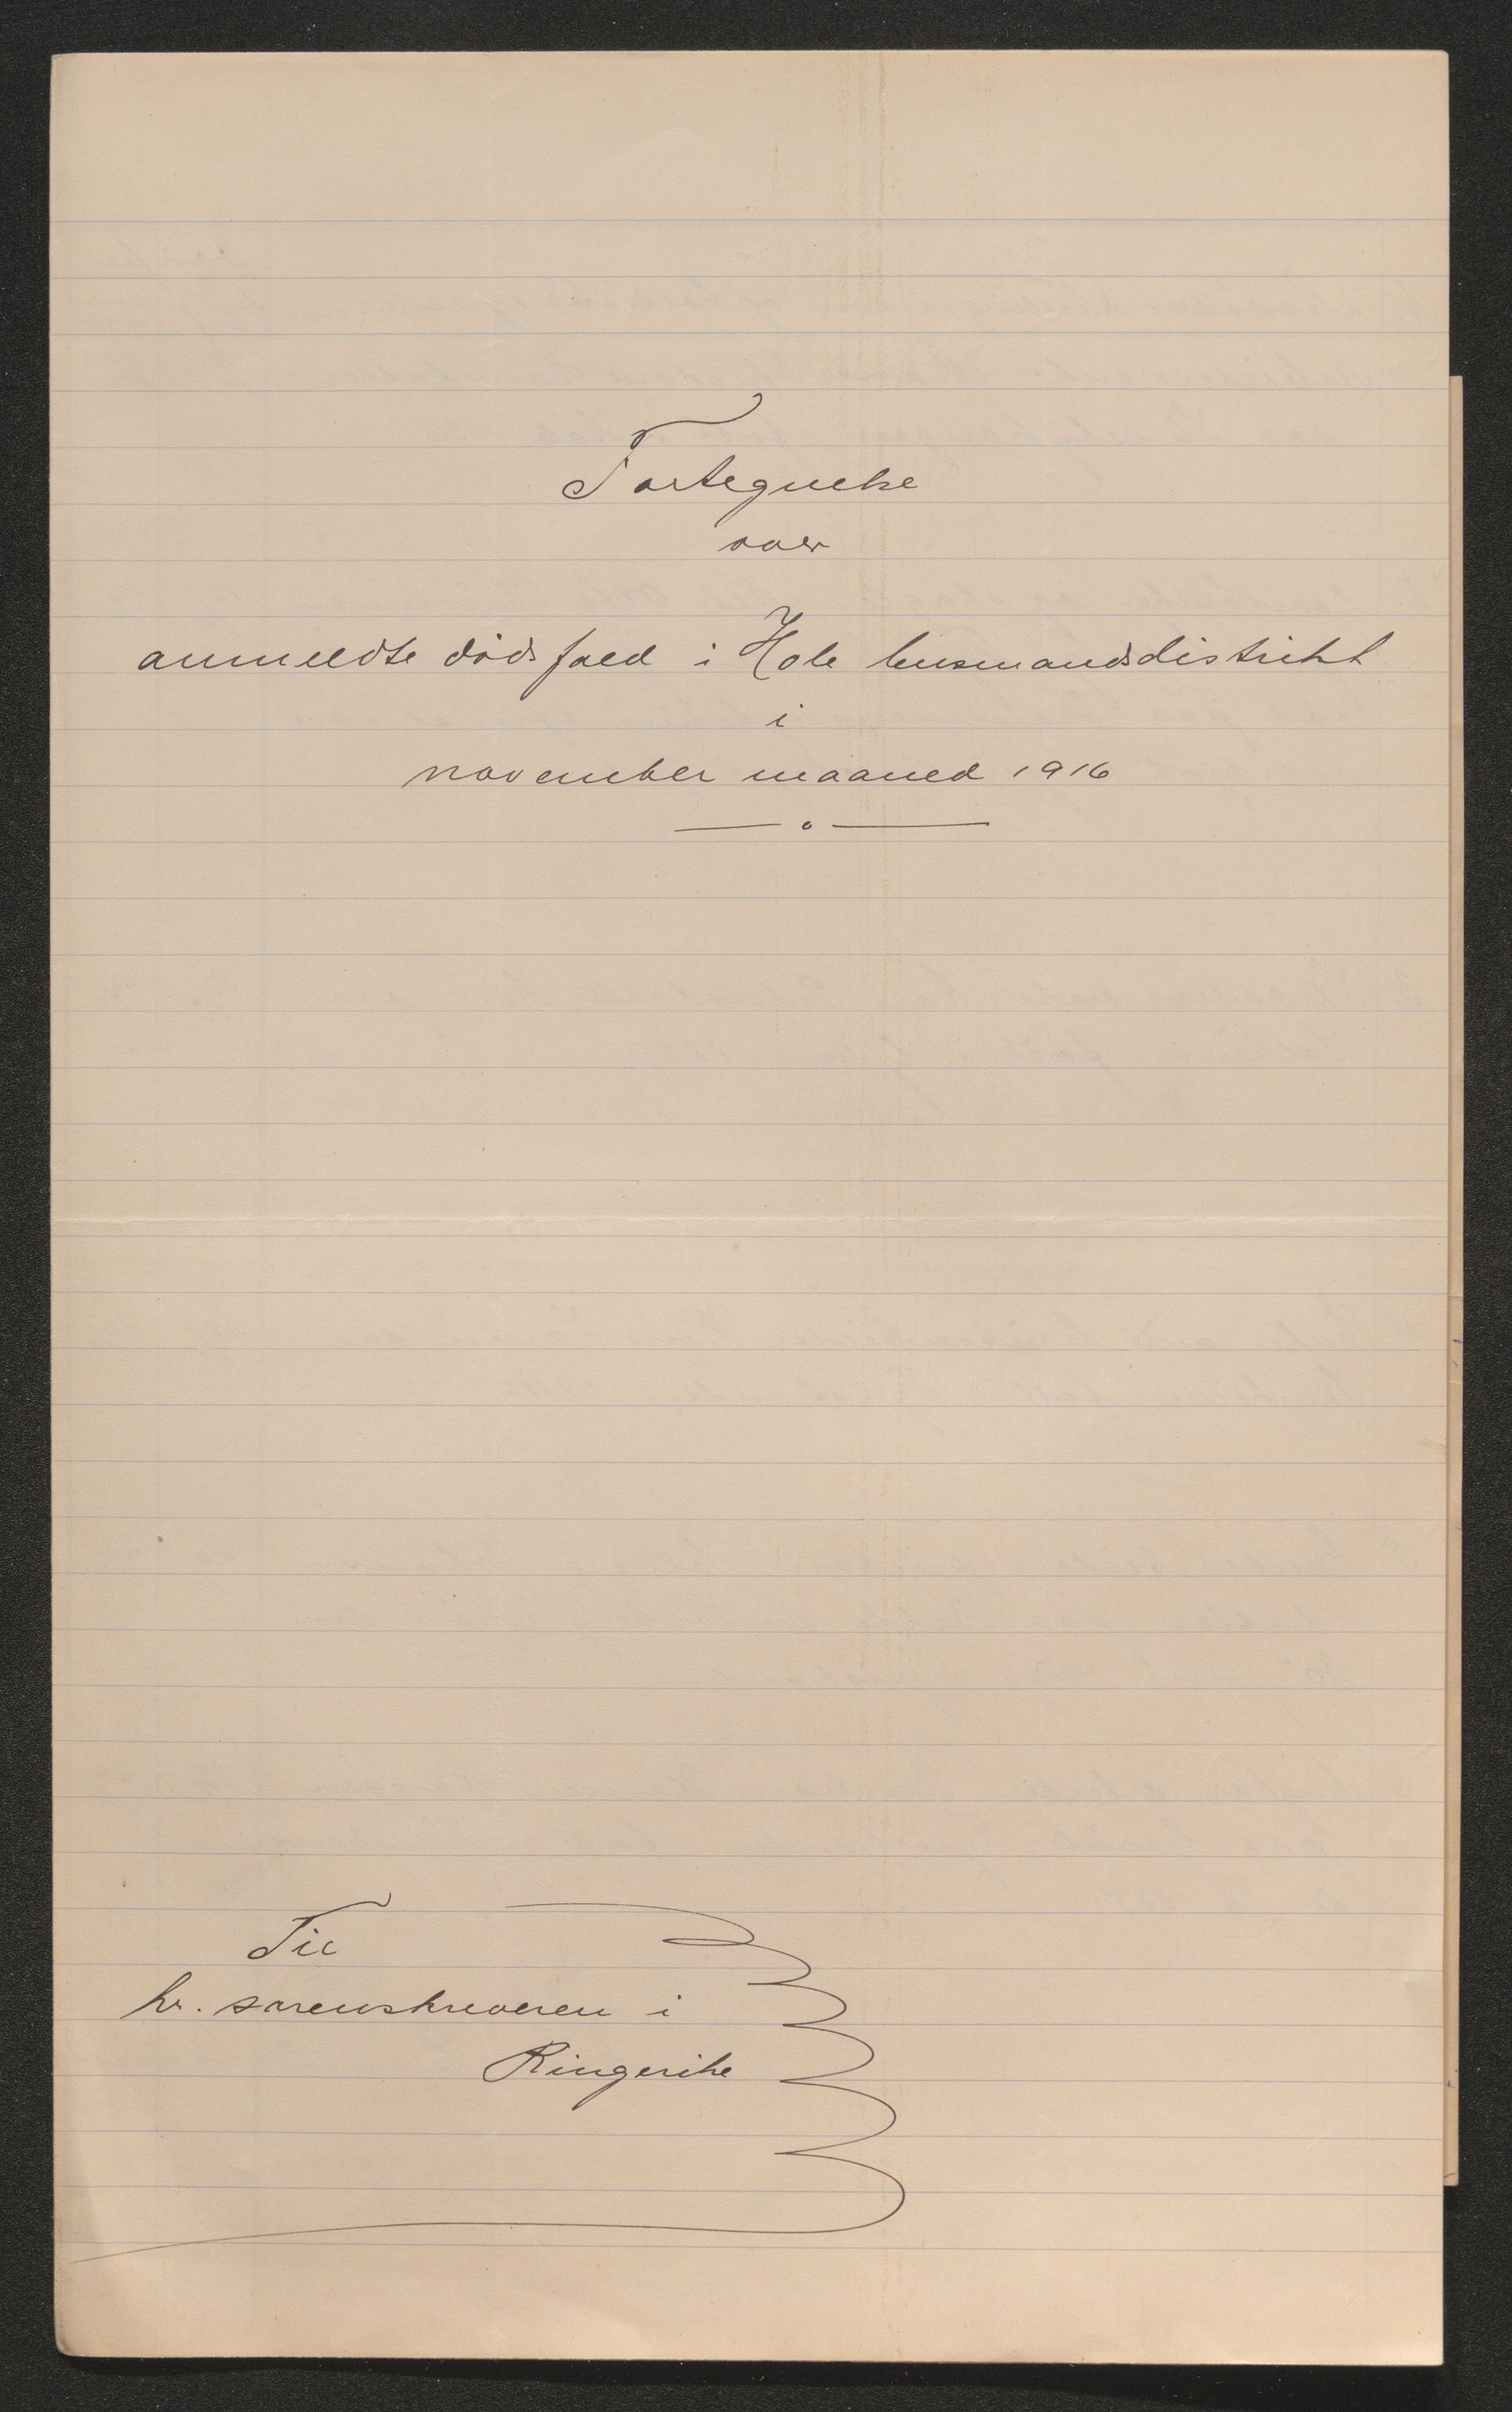 Fortegnelse
over
anmeldte dødsfald i Hole lensmandsdistrikt
i
november maaned 1916
Til
hr. sorenskriveren i
Ringerike